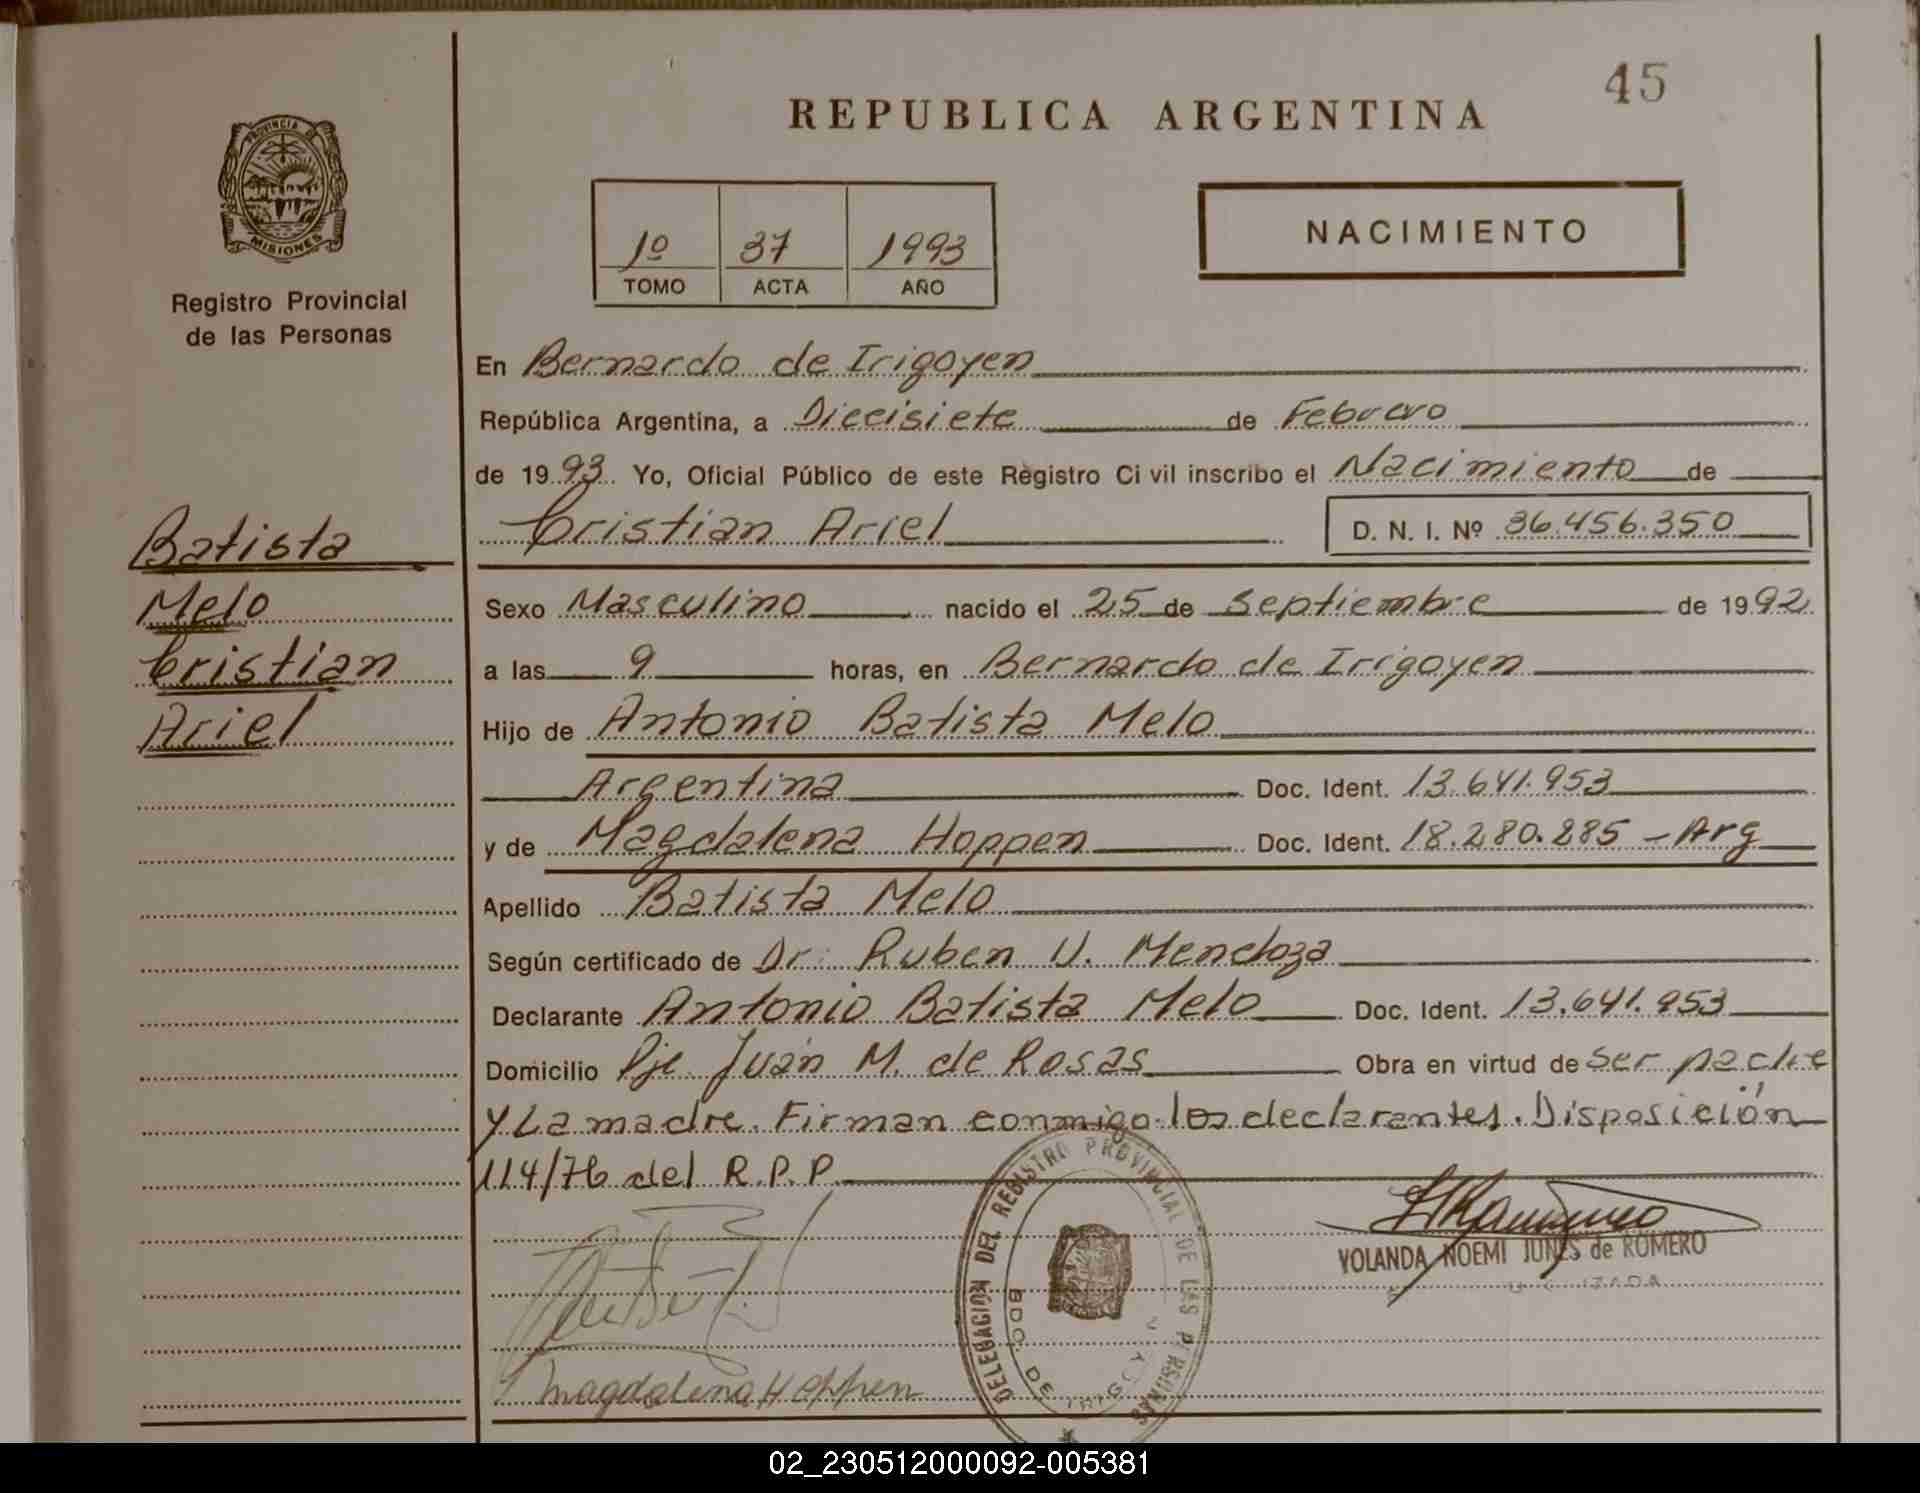 45
REPUBLICA ARGENTINA
PROVINCIA DE
MISIONES
Registro Provincial
de las Personas
1º 37 1993
TOMO ACTA AÑO
NACIMIENTO
En Bernardo de Irigoyen
República Argentina, a Diecisiete de Febrero
de 1993. Yo, Oficial Público de este Registro Civil inscribo el Nacimiento de
Cristian Ariel D. N. I. Nº 36.456.350
Batista
Melo
Cristian
Ariel
Sexo Masculino nacido el 25 de Septiembre de 1992
a las 9 horas, en Bernardo de Irigoyen
Hijo de Antonio Batista Melo
Argentina Doc. Ident. 13.641.953
y de Magdalena Hoppen Doc. Ident. 18.280.285 - Arg
Apellido Batista Melo
Según certificado de Dr. Ruben U. Mendoza
Declarante Antonio Batista Melo Doc. Ident. 13.641.953
Domicilio Pje. Juan M. de Rosas Obra en virtud de ser padre
y La madre. Firman conmigo los declarantes. Disposición
114/76 del R.P.P.
DELEGACION DEL REGISTRO PROVINCIAL DE LAS PERSONAS
BDO. DE IRIGOYEN
YOLANDA NOEMI JUNES de ROMERO
Magdalena Hoppen
02_230512000092-005381